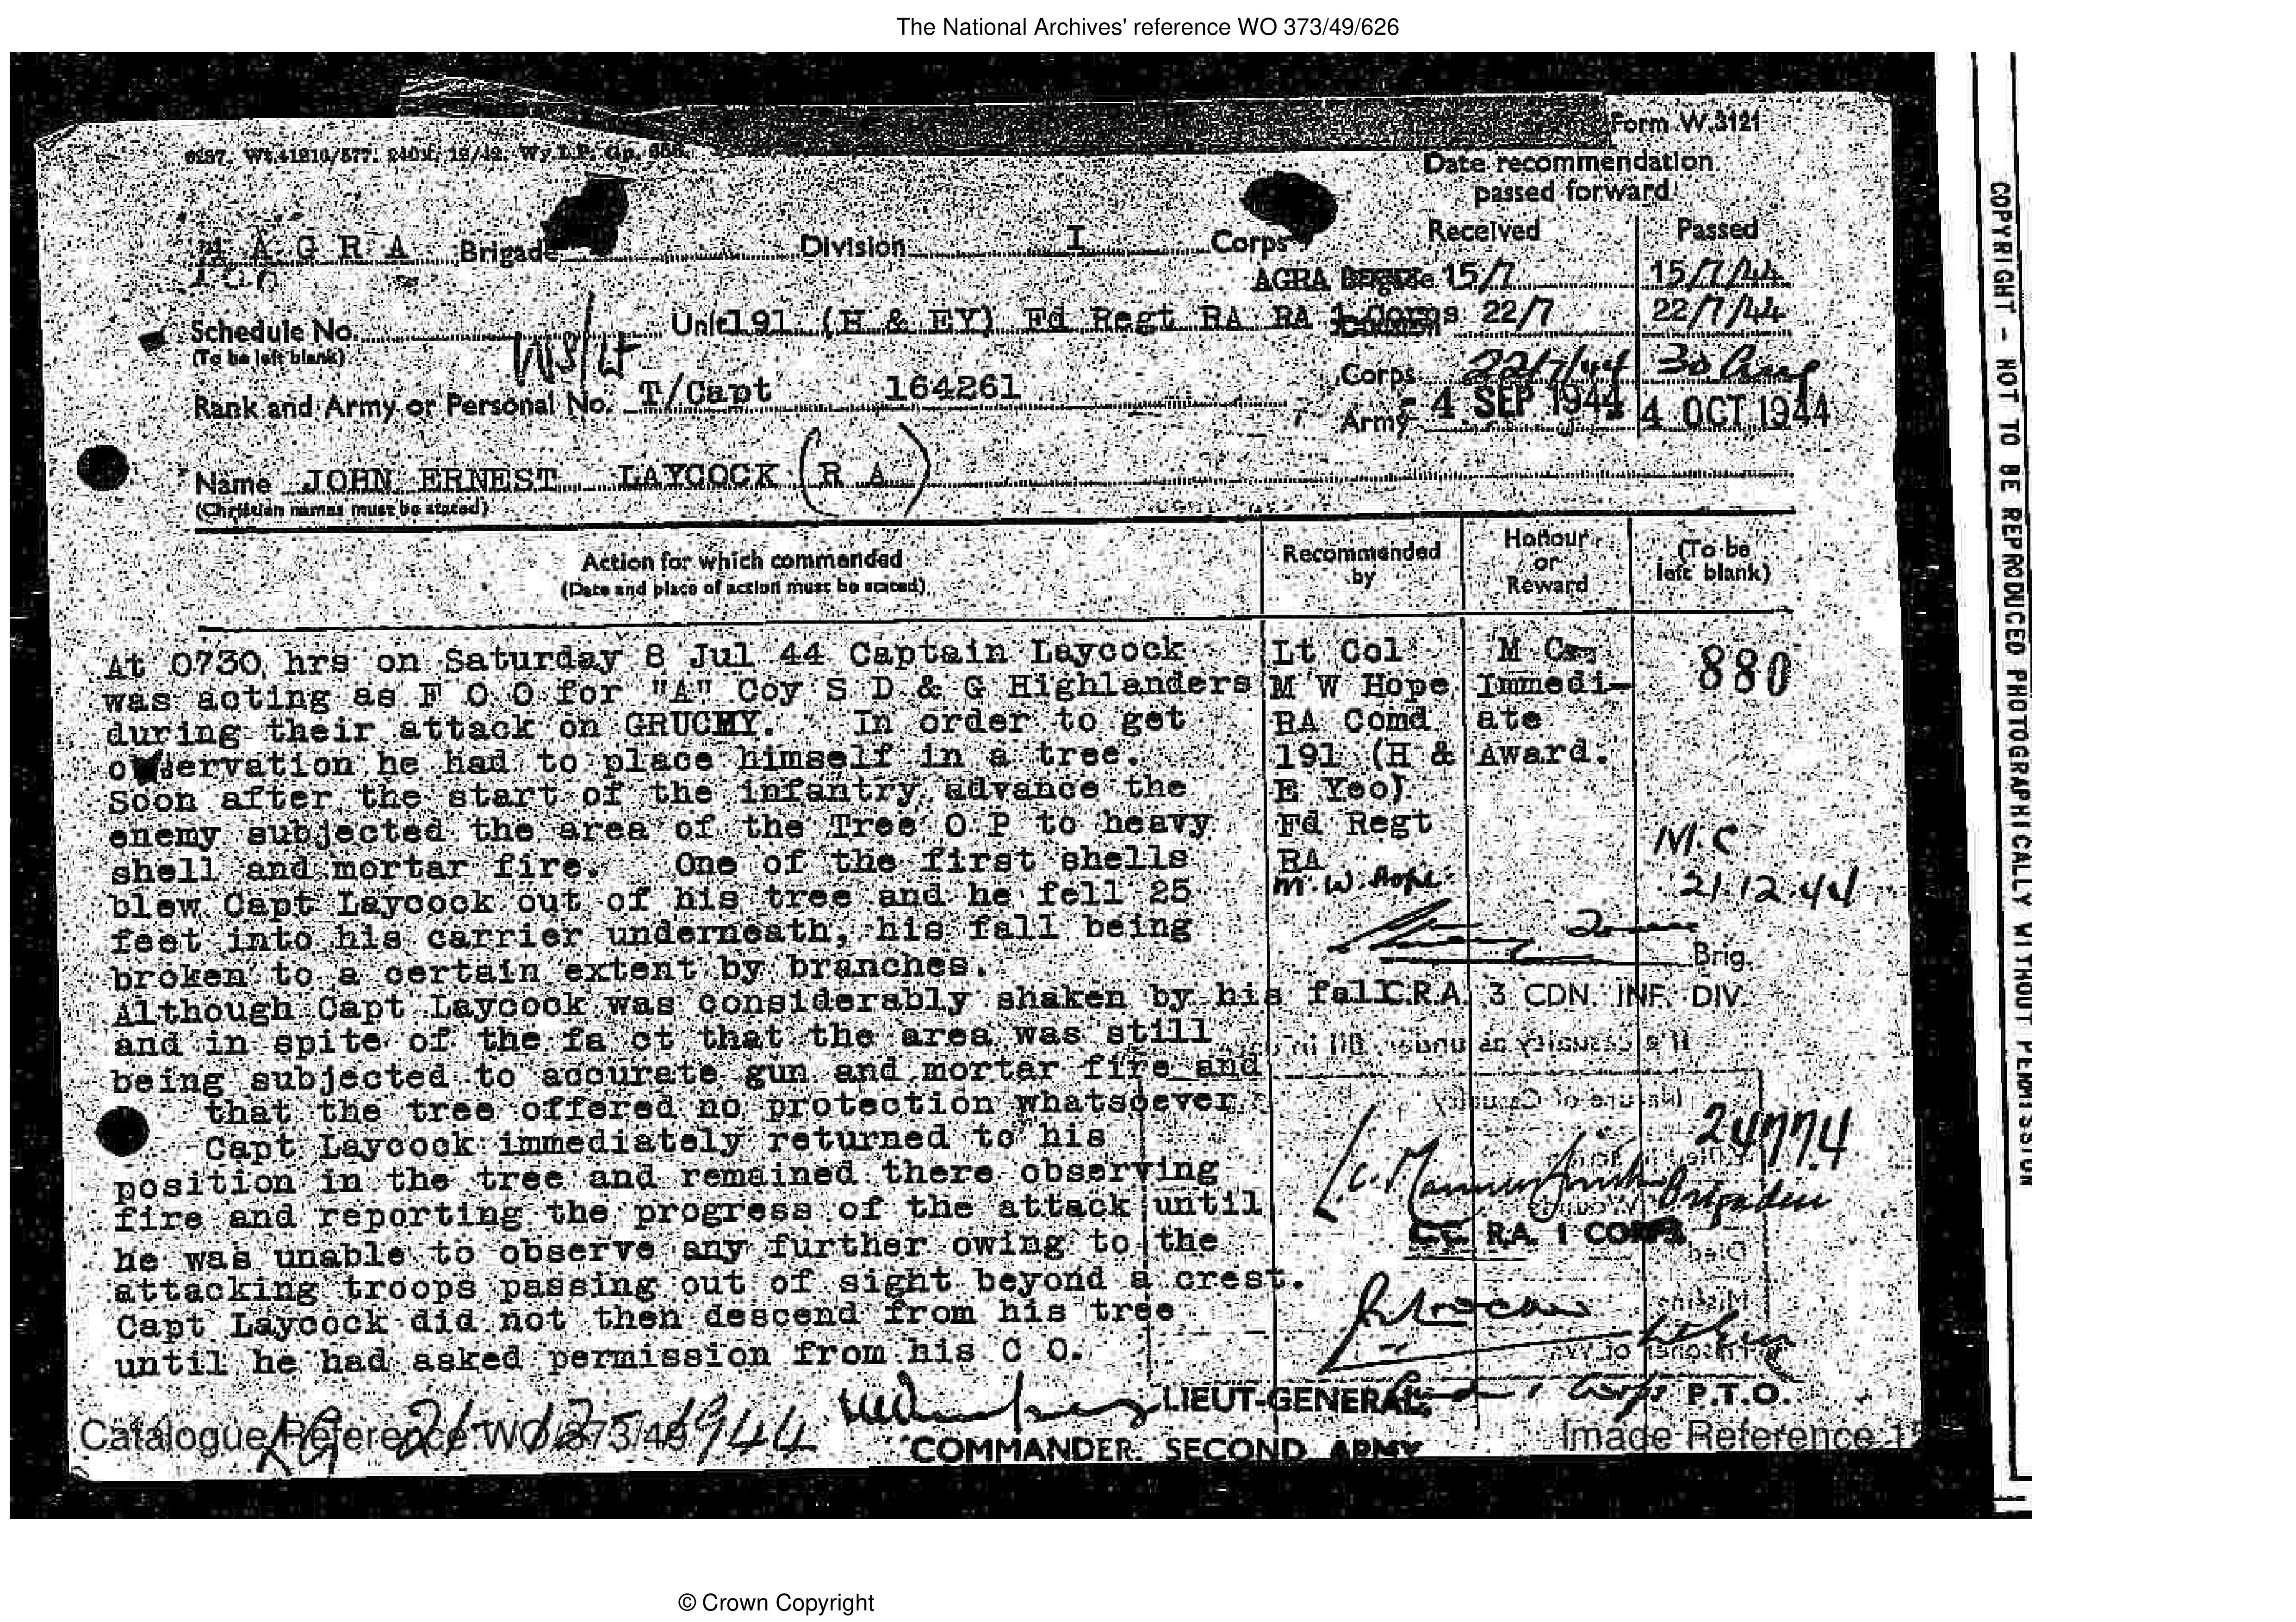 The National Archives' reference WO 373/49/626
Form W.3121
Date recommendation
passed forward
Received Passed
A G R A Brigade Division I Corps
AGRA 15/7 15/7/44
Schedule No. Unit 191 (H & EY) Fd Regt RA RA 1 Corps 22/7 22/7/44
(To be left blank)
WS/Lt
Corps 22/7/44 30 Aug
Rank and Army or Personal No. T/Capt 164261
Army 4 SEP 1944 4 OCT 1944
Name JOHN ERNEST LAYCOCK (R A)
(Christian names must be stated)
Action for which commended
(Date and place of action must be stated)
Recommended
by
Honour
or
Reward
(To be
left blank)
At 0730 hrs on Saturday 8 Jul 44 Captain Laycock
was acting as F O O for "A" Coy S D & G Highlanders
during their attack on GRUCHY. In order to get
observation he had to place himself in a tree.
Soon after the start of the infantry advance the
enemy subjected the area of the Tree O P to heavy
shell and mortar fire. One of the first shells
blew Capt Laycock out of his tree and he fell 25
feet into his carrier underneath, his fall being
broken to a certain extent by branches.
Although Capt Laycock was considerably shaken by his fall
and in spite of the fa ct that the area was still
being subjected to accurate gun and mortar fire and
that the tree offered no protection whatsoever
Capt Laycock immediately returned to his
position in the tree and remained there observing
fire and reporting the progress of the attack until
he was unable to observe any further owing to the
attacking troops passing out of sight beyond a crest.
Capt Laycock did not then descend from his tree
until he had asked permission from his C O.
Lt Col
M W Hope
RA Comd
191 (H &
E Yeo)
Fd Regt
RA
M.W. Hope
M C
Immedi-
ate
Award.
880
M.C
21.12.44
Brig.
C.R.A. 3 CDN. INF. DIV.
24774
Brigadier
C.C. R.A. 1 CORPS
Lt Gen
1 Corps P.T.O.
LIEUT-GENERAL,
COMMANDER, SECOND ARMY
LG 21 12 1944
Catalogue Reference:WO/373/49
Image Reference:15
COPYRIGHT - NOT TO BE REPRODUCED PHOTOGRAPHICALLY WITHOUT PERMISSION
© Crown Copyright